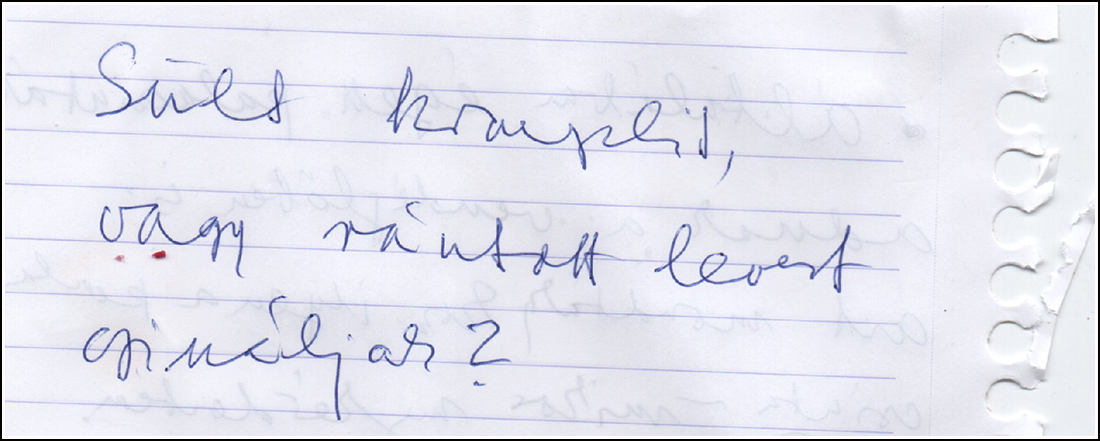 Sült krumplit,
vagy rántott levest
csináljak?